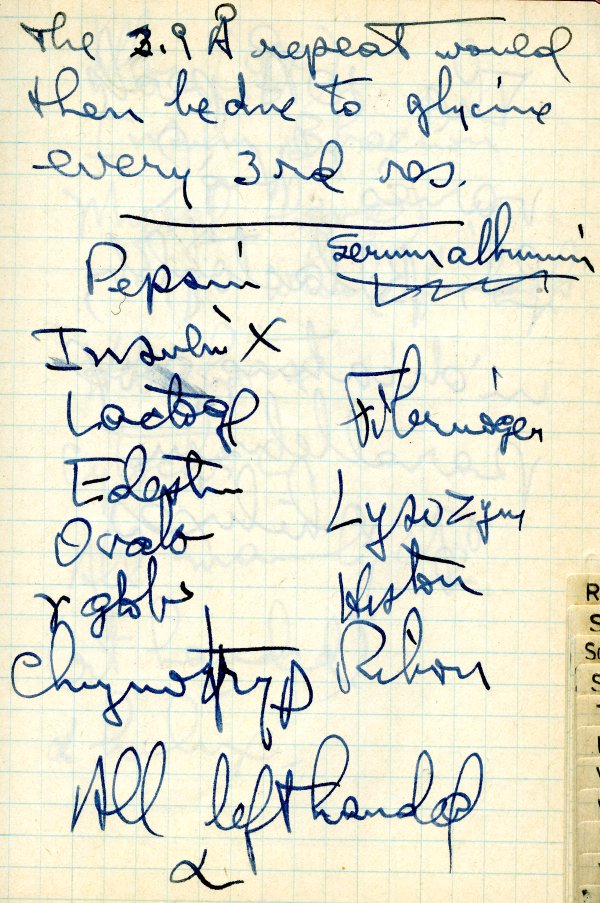 The 3.9 Å repeat would
then be due to glycine
every 3rd res.
Pepsin Serum albumin
Insulin X
Lactogl Fibrinogen
Edestin
Lysozym
Ovalb
γ globs Histon
Chymotryp Ribon
All lefthanded
α
R
S
Sc
S